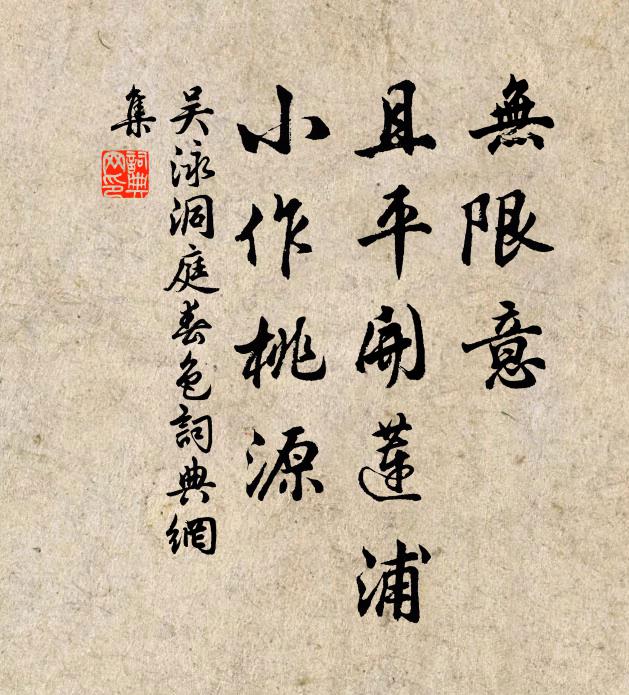 無限意
且平開蓮浦
小作桃源
吳泳洞庭春色詞典網
集
詞典
网印